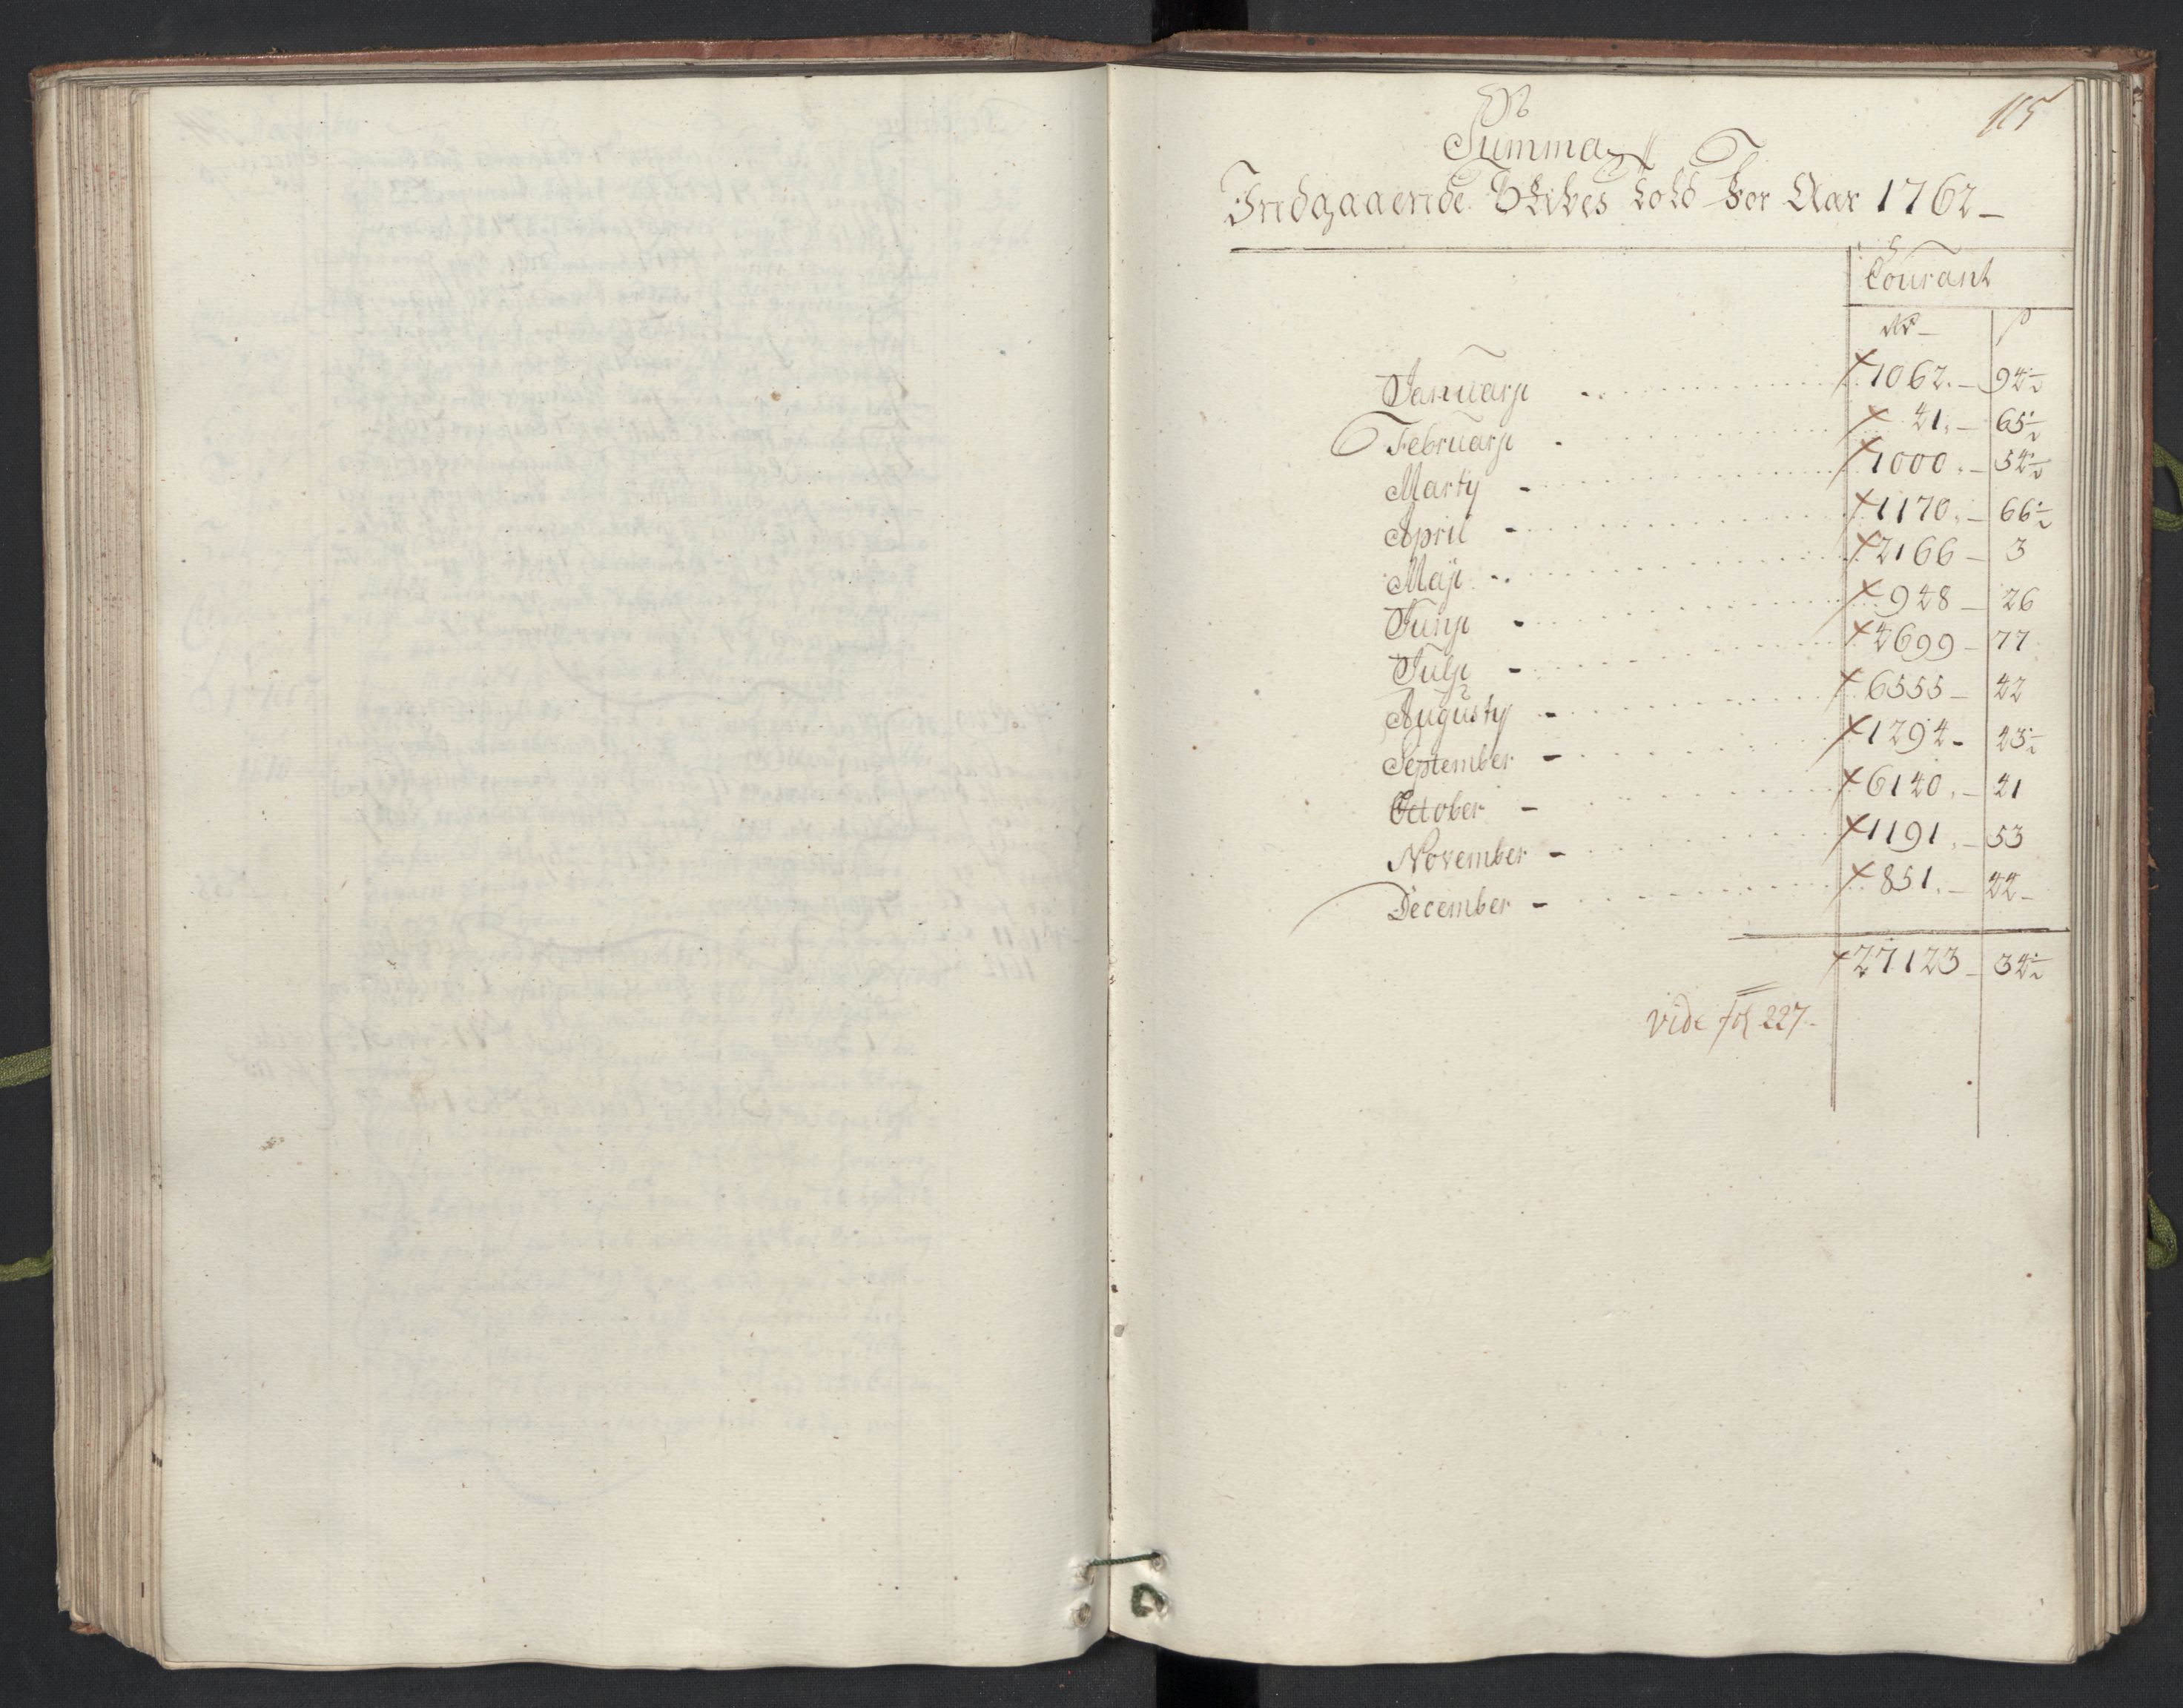 115
Summa
Indgaaende Skibes Told for Aar 1762
Courant
Rd ß
Januarji 1062. 94½
Februarji 41. 65½
Marty 1000. 54½
April 1170. 66½
Maji 2166 3
Junji 948 26
Julji 4699 77
Augusty 6555 42
September 1294 43½
October 6140. 41
November 1191. 53
December 851. 44
27123 34½
vide fol 227.